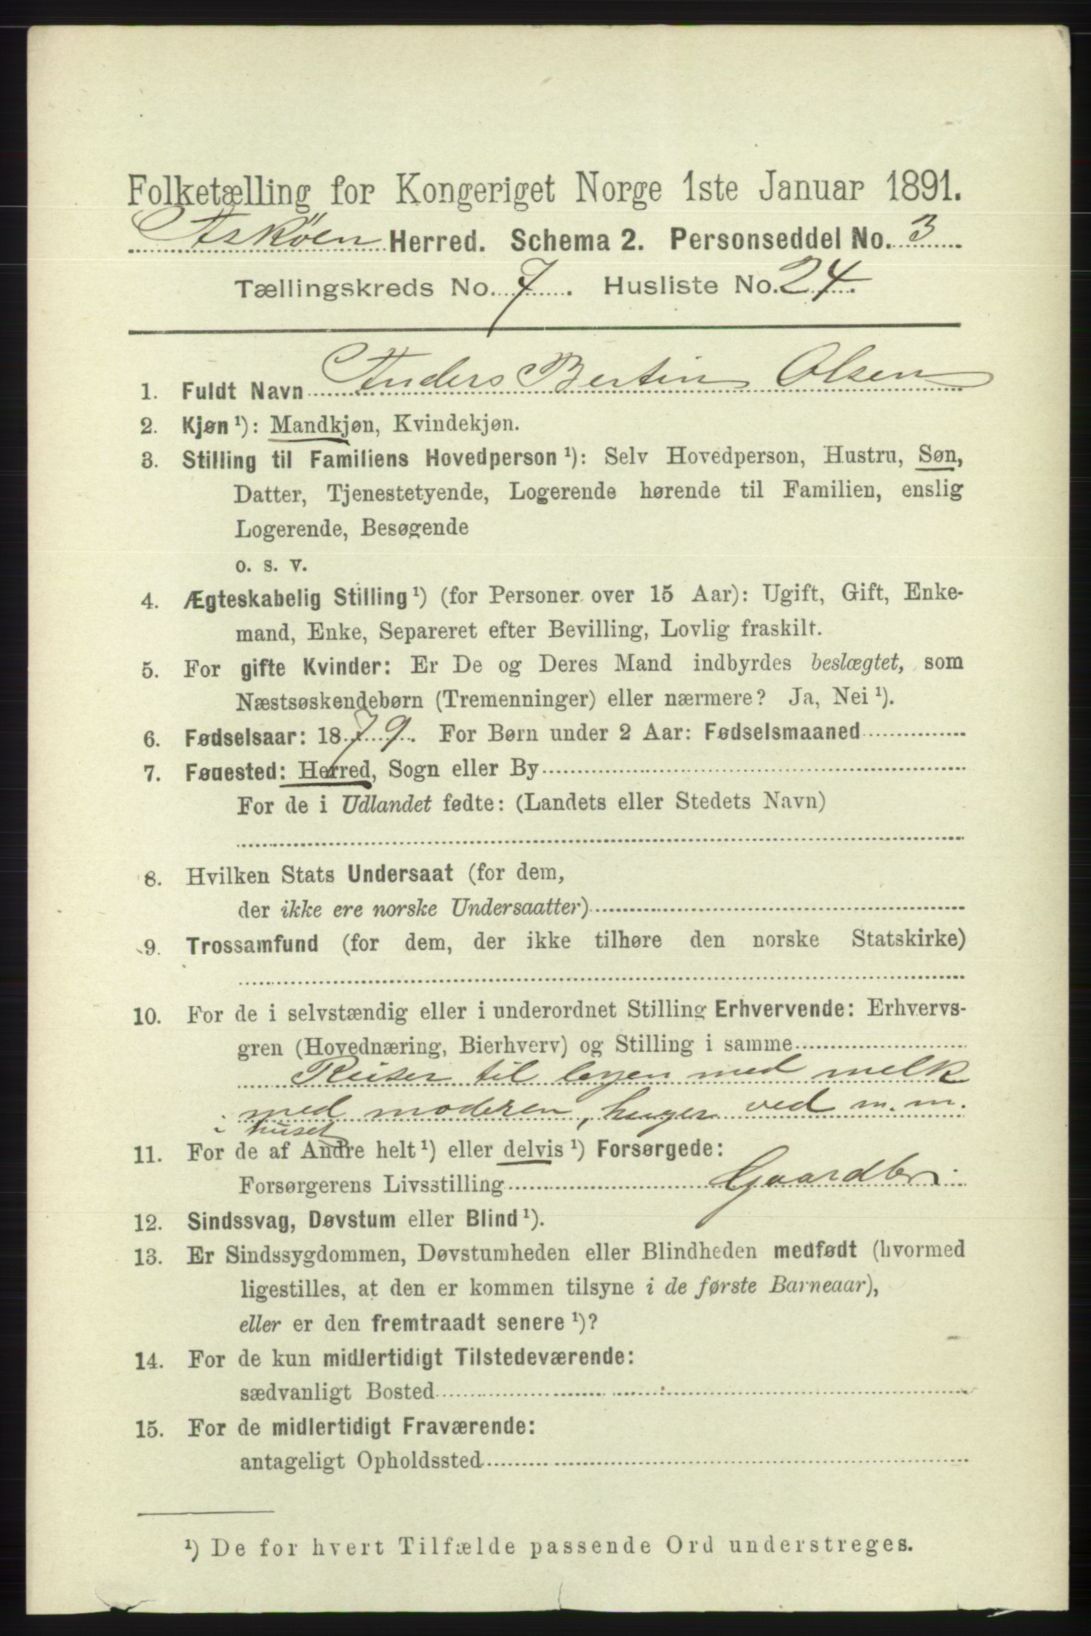 Folketælling for Kongeriget Norge 1ste Januar 1891.
Askøen Herred. Schema 2. Personseddel No. 3
Tællingskreds No. 7. Husliste No. 24.
1. Fuldt Navn Anders Bertin Olsen
2. Kjøn ¹): Mandkjøn, Kvindekjøn.
3. Stilling til Familiens Hovedperson ¹): Selv Hovedperson, Hustru, Søn,
Datter, Tjenestetyende, Logerende hørende til Familien, enslig
Logerende, Besøgende
o. s. v.
4. Ægteskabelig Stilling ¹) (for Personer over 15 Aar): Ugift, Gift, Enke-
mand, Enke, Separeret efter Bevilling, Lovlig fraskilt.
5. For gifte Kvinder: Er De og Deres Mand indbyrdes beslægtet, som
Næstsøskendebørn (Tremenninger) eller nærmere? Ja, Nei ¹).
6. Fødselsaar: 1879. For Børn under 2 Aar: Fødselsmaaned
7. Føuested: Herred, Sogn eller By
For de i Udlandet fødte: (Landets eller Stedets Navn)
8. Hvilken Stats Undersaat (for dem,
der ikke ere norske Undersaatter)
9. Trossamfund (for dem, der ikke tilhøre den norske Statskirke)
10. For de i selvstændig eller i underordnet Stilling Erhvervende: Erhvervs-
gren (Hovednæring, Bierhverv) og Stilling i samme
Reiser til byen med melk
med moderen, huger ved m. m.
i huset
11. For de af Andre helt ¹) eller delvis ¹) Forsørgede:
Forsørgerens Livsstilling Gaardbr.
12. Sindssvag, Døvstum eller Blind ¹).
13. Er Sindssygdommen, Døvstumheden eller Blindheden medfødt (hvormed
ligestilles, at den er kommen tilsyne i de første Barneaar),
eller er den fremtraadt senere ¹)?
14. For de kun midlertidigt Tilstedeværende:
sædvanligt Bosted
15. For de midlertidigt Fraværende:
antageligt Opholdssted
¹) De for hvert Tilfælde passende Ord understreges.